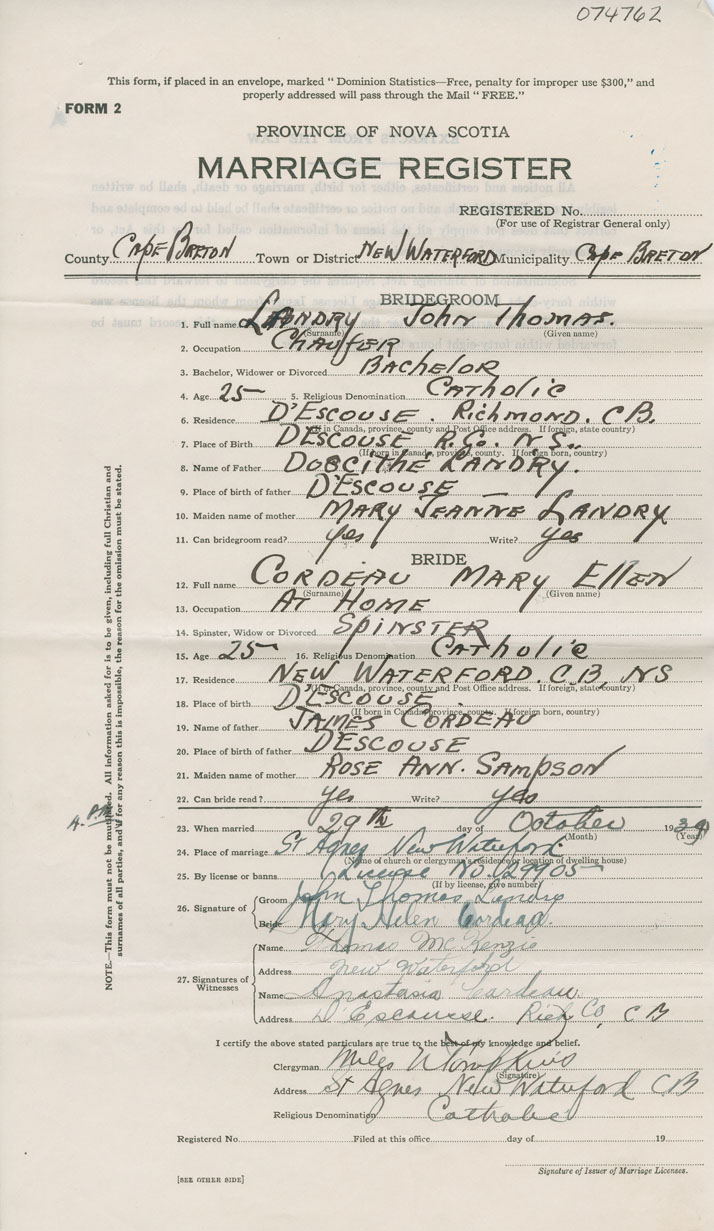 074762
This form, if placed in an envelope, marked " Dominion Statistics—Free, penalty for improper use $300," and
properly addressed will pass through the Mail " FREE."
FORM 2
PROVINCE OF NOVA SCOTIA
MARRIAGE REGISTER
REGISTERED No.
(For use of Registrar General only)
County Cape Breton Town or District New Waterford Municipality Cape Breton
BRIDEGROOM
1. Full name Landry John Thomas.
(Surname) (Given name)
2. Occupation Chaufer
3. Bachelor, Widower or Divorced Bachelor
4. Age 25 5. Religious Denomination Catholic
6. Residence D'Escouse. Richmond. C B.
(If in Canada, province, county and Post Office address. If foreign, state country)
7. Place of Birth D'Escouse R. Co. N S.
(If born in Canada, province, county. If foreign born, country)
8. Name of Father Doscithé Landry.
9. Place of birth of father D'Escouse
10. Maiden name of mother Mary Jeanne Landry
11. Can bridegroom read? yes Write? yes
BRIDE
12. Full name Cordeau Mary Ellen
(Surname) (Given name)
13. Occupation At Home
14. Spinster, Widow or Divorced Spinster
15. Age 25 16. Religious Denomination Catholic
17. Residence New Waterford. C.B, NS
(If in Canada, province, county and Post Office address. If foreign, state country)
18. Place of birth D'Escouse
(If born in Canada, province, county. If foreign born, country)
19. Name of father James Cordeau
20. Place of birth of father D'Escouse
21. Maiden name of mother Rose Ann. Sampson
22. Can bride read? yes Write? yes
23. When married 29th day of October 1939
(Month) (Year)
24. Place of marriage St Agnes New Waterford
(Name of church or clergyman's residence or location of dwelling house)
25. By license or banns License No. 29905
(If by license, give number)
26. Signature of
Groom John Thomas Landry
Bride Mary Helen Cordeau.
27. Signatures of Witnesses
Name Thomas McKenzie
Address New Waterford
Name Anastasia Cordeau
Address D'Escousse. Rich Co, C B
I certify the above stated particulars are true to the best of my knowledge and belief.
Clergyman Miles N Tompkins
(Signature)
Address St Agnes New Waterford C B
Religious Denomination Catholic
Registered No. Filed at this office day of 19
Signature of Issuer of Marriage Licenses.
[SEE OTHER SIDE]
NOTE.—This form must not be mutilated. All information asked for is to be given, including full Christian and
surnames of all parties, and if for any reason this is impossible, the reason for the omission must be stated.